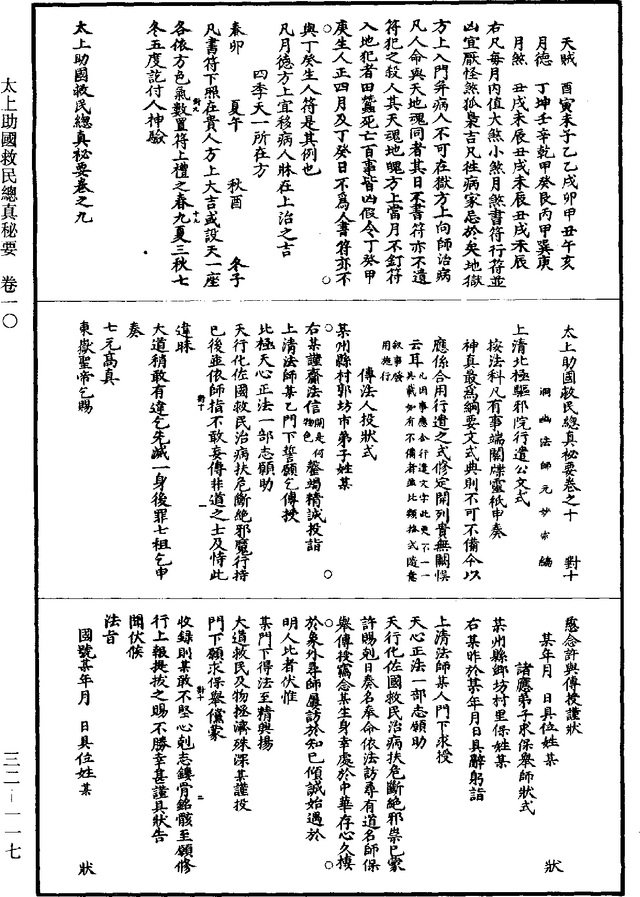 天賊　酉寅未子乙乙戌卯甲丑午亥
月德　丁坤壬辛乾甲癸艮丙甲巽庚
月煞　丑戌未辰丑戌未辰丑戌未辰
右凡每月內值大煞小煞月煞書符行符並
凶宜厭怪煞狐梟吉凡性病家忌於矣地獄
方上入門并病人不可在獄方上向師治病
凡人命與天地魂同者其日不書符亦不遣
符犯之殺人其天魂地魄方上當月不釘符
入地犯者田蠶死亡百事皆凶假令丁癸甲
庚生人正四月及丁癸日不為人書符亦不
與丁癸生人符是其例也
凡月德方上宜移病人牀在上治之吉
四季天一所在方
春卯　夏午　秋酉　冬子
凡書符下照在貴人方上大吉或設天一座
各依方色氣數置符上禮之春九夏三秋七
冬五度訖付人神驗
太上助國救民總真秘要卷之九
太上助國救民總真秘要卷之十　對十
洞幽法師元妙宗編
上清北極驅邪院行遣公文式
按法科凡有事端關牒靈祇申奏
神真最為綱要文式典則不可不備今以
應係合用行遣之式修定開列貴無闕悞
云耳
凡因事應合行遣文字此更不一一
具載如有不備者並比類格式隨意
敘事發
用施行
傳法人投狀式
某州縣村郭坊市弟子姓某
右某謹齎法信開是何物色罄竭精誠投詣
上清法師某乙門下誓願乞傳授
北極天心正法一部志願助
天行化佐國救民治病扶危斷絕邪魔行持
已後並依師指不敢妄傳非道之士及恃此
違昧
大道稍敢有違乞先滅一身後罪七祖乞申
奏
七元高真
東嶽聖帝乞賜
愍念許與傳授謹狀
某年月　日具位姓某　狀
諸應弟子求保舉師狀式
某州縣鄉坊村里保姓某
右某昨於某年月日具辭躬詣
上清法師某人門下求授
天心正法一部志願助
天行化佐國救民治病扶危斷絕邪祟已蒙
許賜剋日奏名奉命依法訪尋有道名師保
舉傳授竊念某生身幸處於中華存心久棲
於象外尋師屢訪於知已傾誠始遇於
明人比者伏惟
某門下得法至精興揚
大道救民及物拯濟殊深某謹投
門下願求保舉儻蒙
收錄則某敢不堅心剋志鏤骨銘骸至願修
行上報提拔之賜不勝幸甚謹具狀告
聞伏候
法旨
國號某年月　日具位姓某　狀
太上助國救民總真秘要　卷一〇
三二－一一七